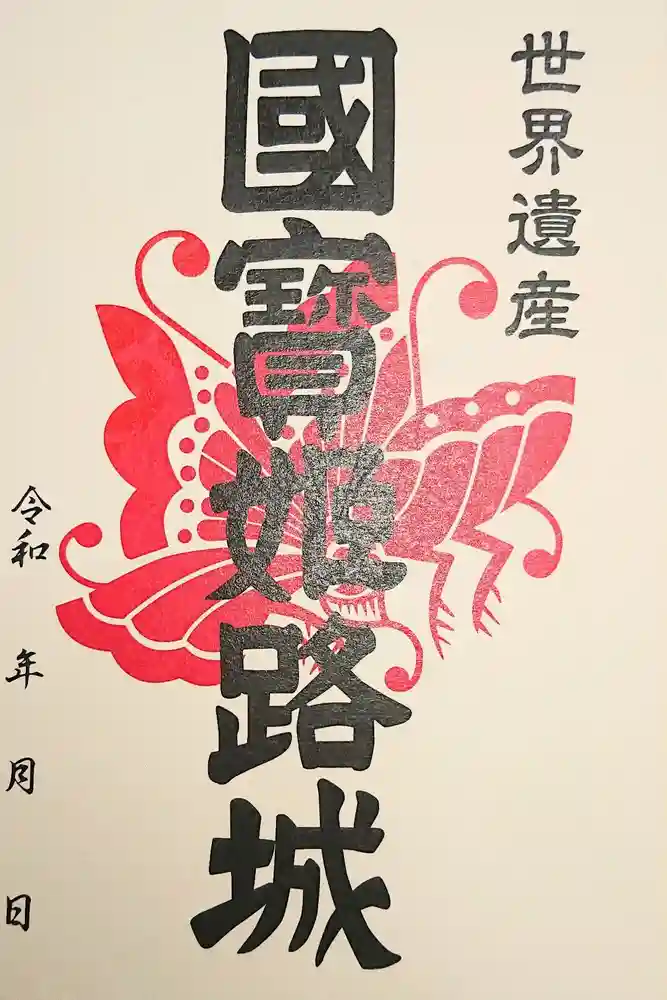 世界遺産
國寳姫路城
令和 年 月 日